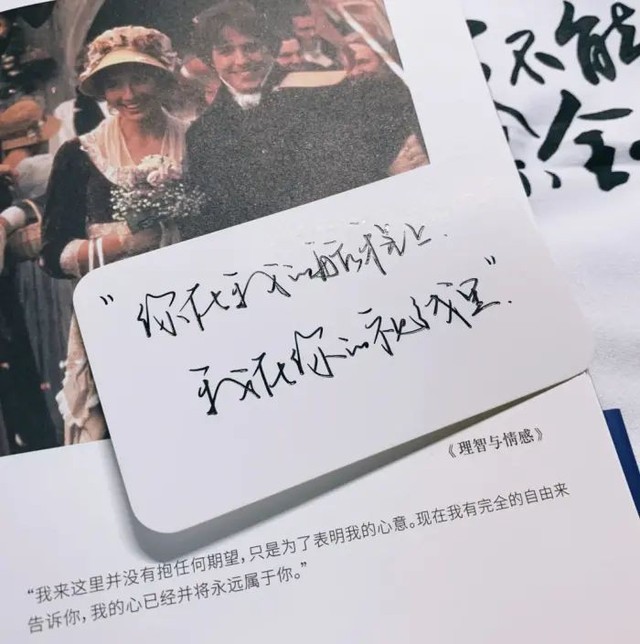 不能
全
"你在我的上.
我在你的里".
《理智与情感》
“我来这里并没有抱任何期望，只是为了表明我的心意。现在我有完全的自由来
告诉你，我的心已经并将永远属于你。”